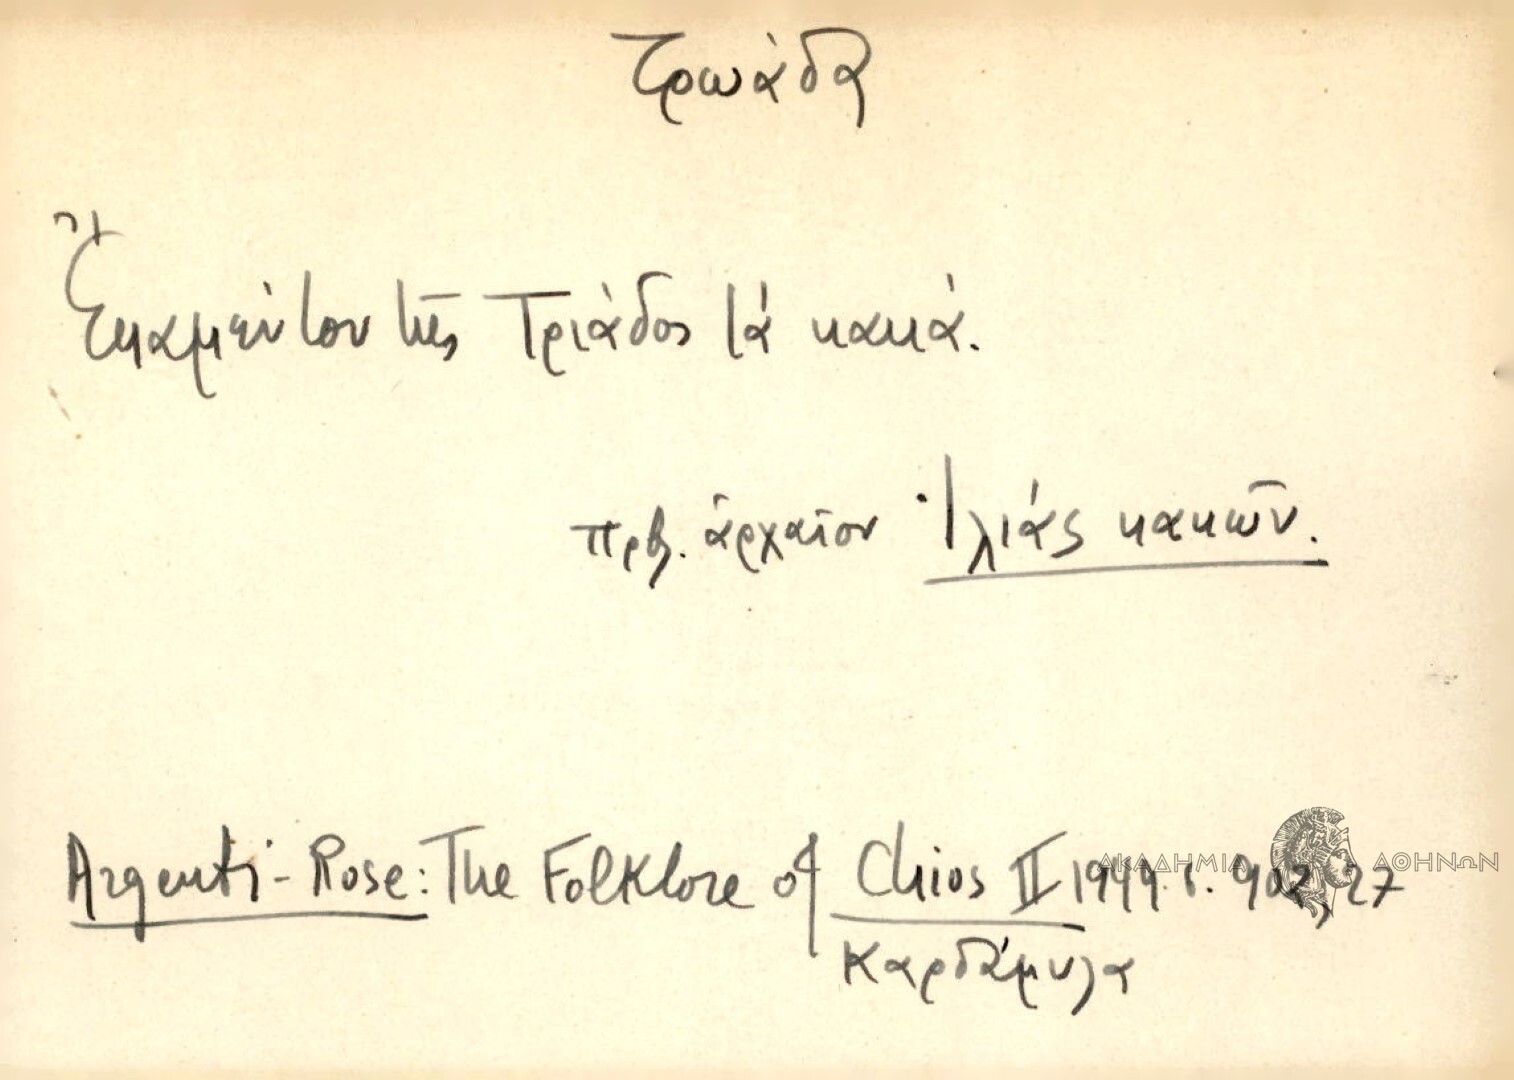 Τρωάδα
Ἔκαμέν του τῆς Τριάδος τὰ κακά.
πρβ. ἀρχαῖον Ἰλιάς κακῶν.
Argenti - Rose: The Folklore of Chios II 1949. σ. 902, 27
Καρδάμυλα
ΑΚΑΔΗΜΙΑ ΑΘΗΝΩΝ